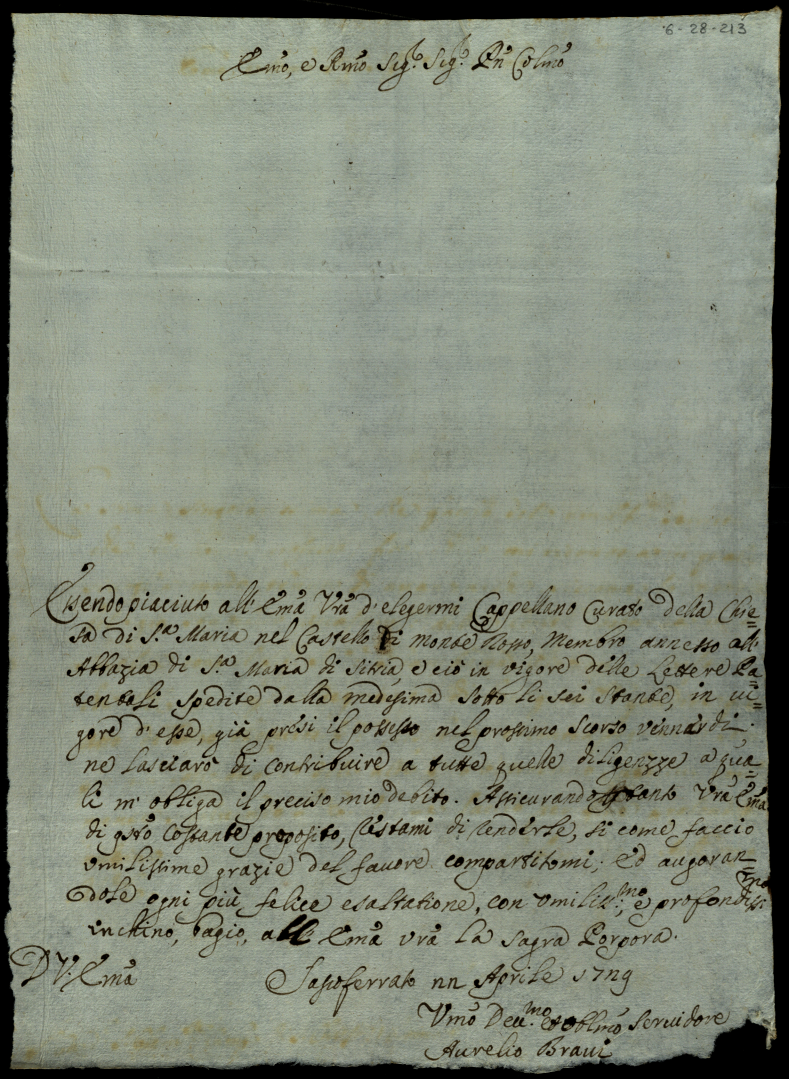 6-28-213
Emo, e Rmo Sigr. Sigr. Pn Colmo
Essendo piaciuto all' Ema Vra d'elegermi Cappellano Curato della Chie=
sa di S.a Maria nel Castello di Monte Rosso, Membro annesso all'
Abbazia di S.a Maria di Sitria, e ciò in vigore delle Lettere Pa=
tentali spedite dalla medesima sotto li sei stante, in vi=
gore d'esse, già presi il possesso nel prossimo scorso vennardi
ne lasciarò di contribuire a tutte quelle diligenzze a qua=
li m' obliga il preciso mio debito. Assicurando tanto Vra Ema
di qsto costante proposito, restami di renderle, si come faccio
umilissime grazie del favore compartitomi; ed auguran=
dole ogni più felice esaltatione, con umiliss:mo, e profondissimo
inchino, bagio, all' Ema vra la sagra Porpora.
D V: Ema
Sassoferrato nn Aprile 1729
Vmo Deu:mo et oblmo Servidore
Aurelio Bravi